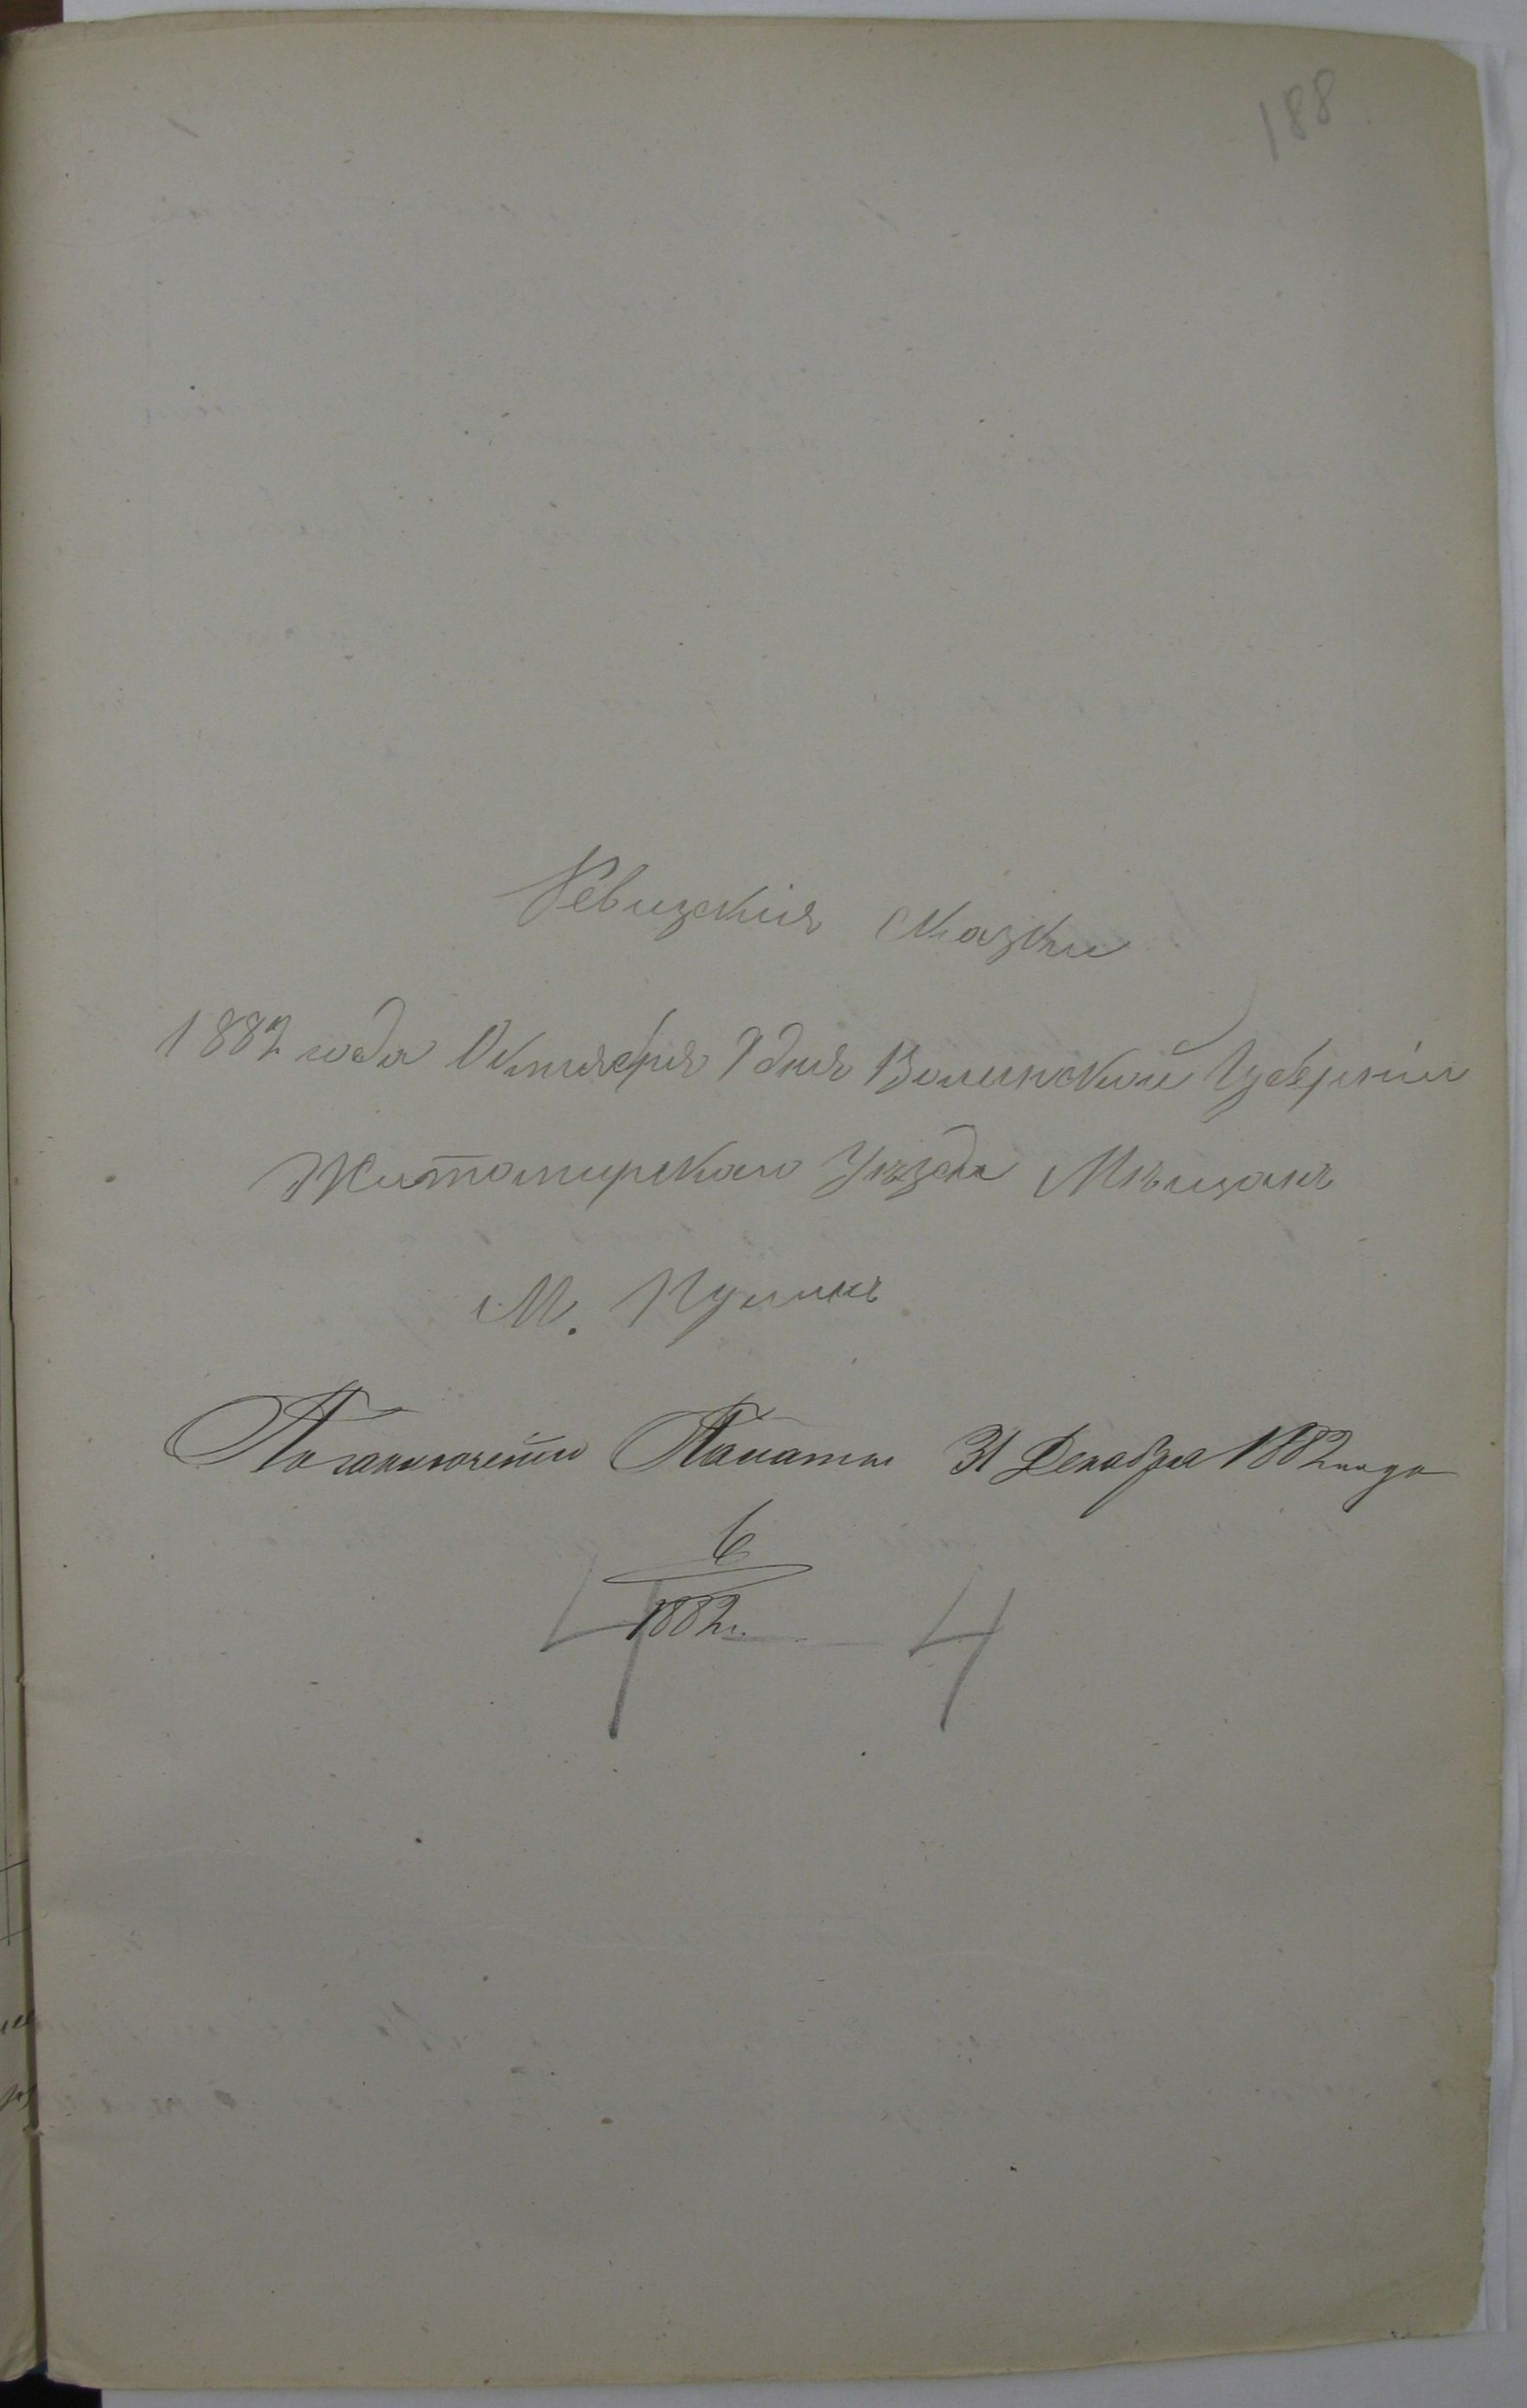 188
Ревизкія сказки
1882 года Октября 9 дня Волынской Губерніи
Житомирскаго Уѣзда Мѣщанъ
М. Пулинъ
По заключенію Палаты 31 Декабря 1882 года
6
1882 г.
4 4